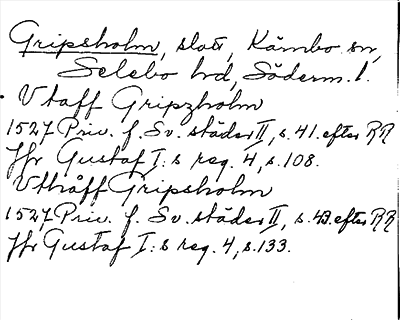 Gripsholm, slott, Kärnbo sn,
Selebo hd, Söderm. l.
Vtaff Gripzholm
1527 Priv. f. Sv. städer II, s. 41. efter RR
Jfr Gustaf I:s reg. 4, s. 108.
Vthåff Gripsholm
1527 Priv. f. Sv. städer II, s. 43. efter RR
Jfr Gustaf I:s reg. 4, s. 133.